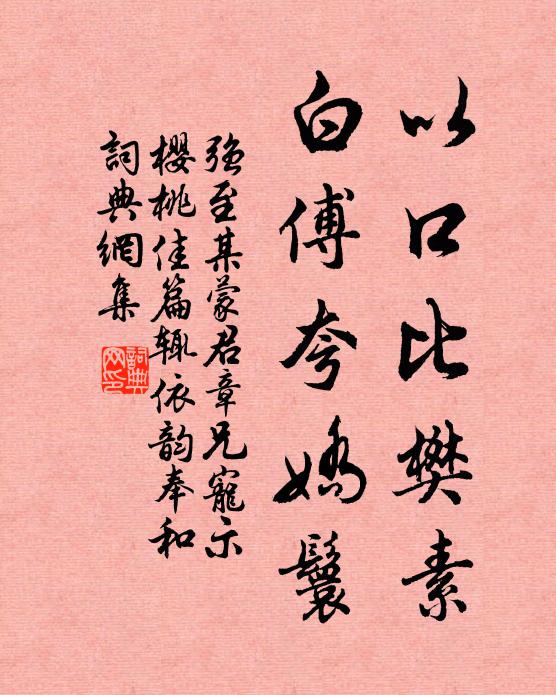 以口比樊素
白傅夸嬌鬟
強至某蒙君章兄寵示
櫻桃佳篇輒依韵奉和
詞典網集
詞典网印